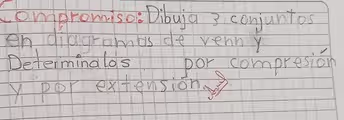 Compromiso: Dibuja 3 conjuntos
en diagramas de venn y
Determinalos por compresión
y por extensión